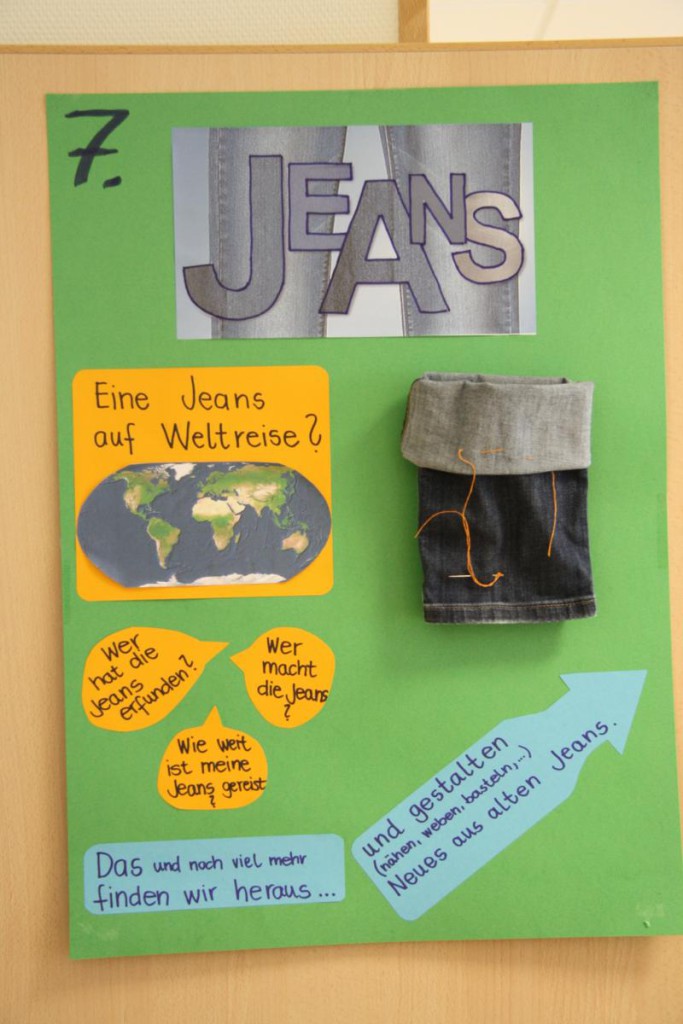 7.
JEANS
Eine Jeans
auf Weltreise?
Wer
hat die
Jeans
erfunden?
Wer
macht
die Jeans
?
Wie weit
ist meine
Jeans gereist
?
Das und noch viel mehr
finden wir heraus...
und gestalten
(nähen, weben, basteln,...)
Neues aus alten Jeans.